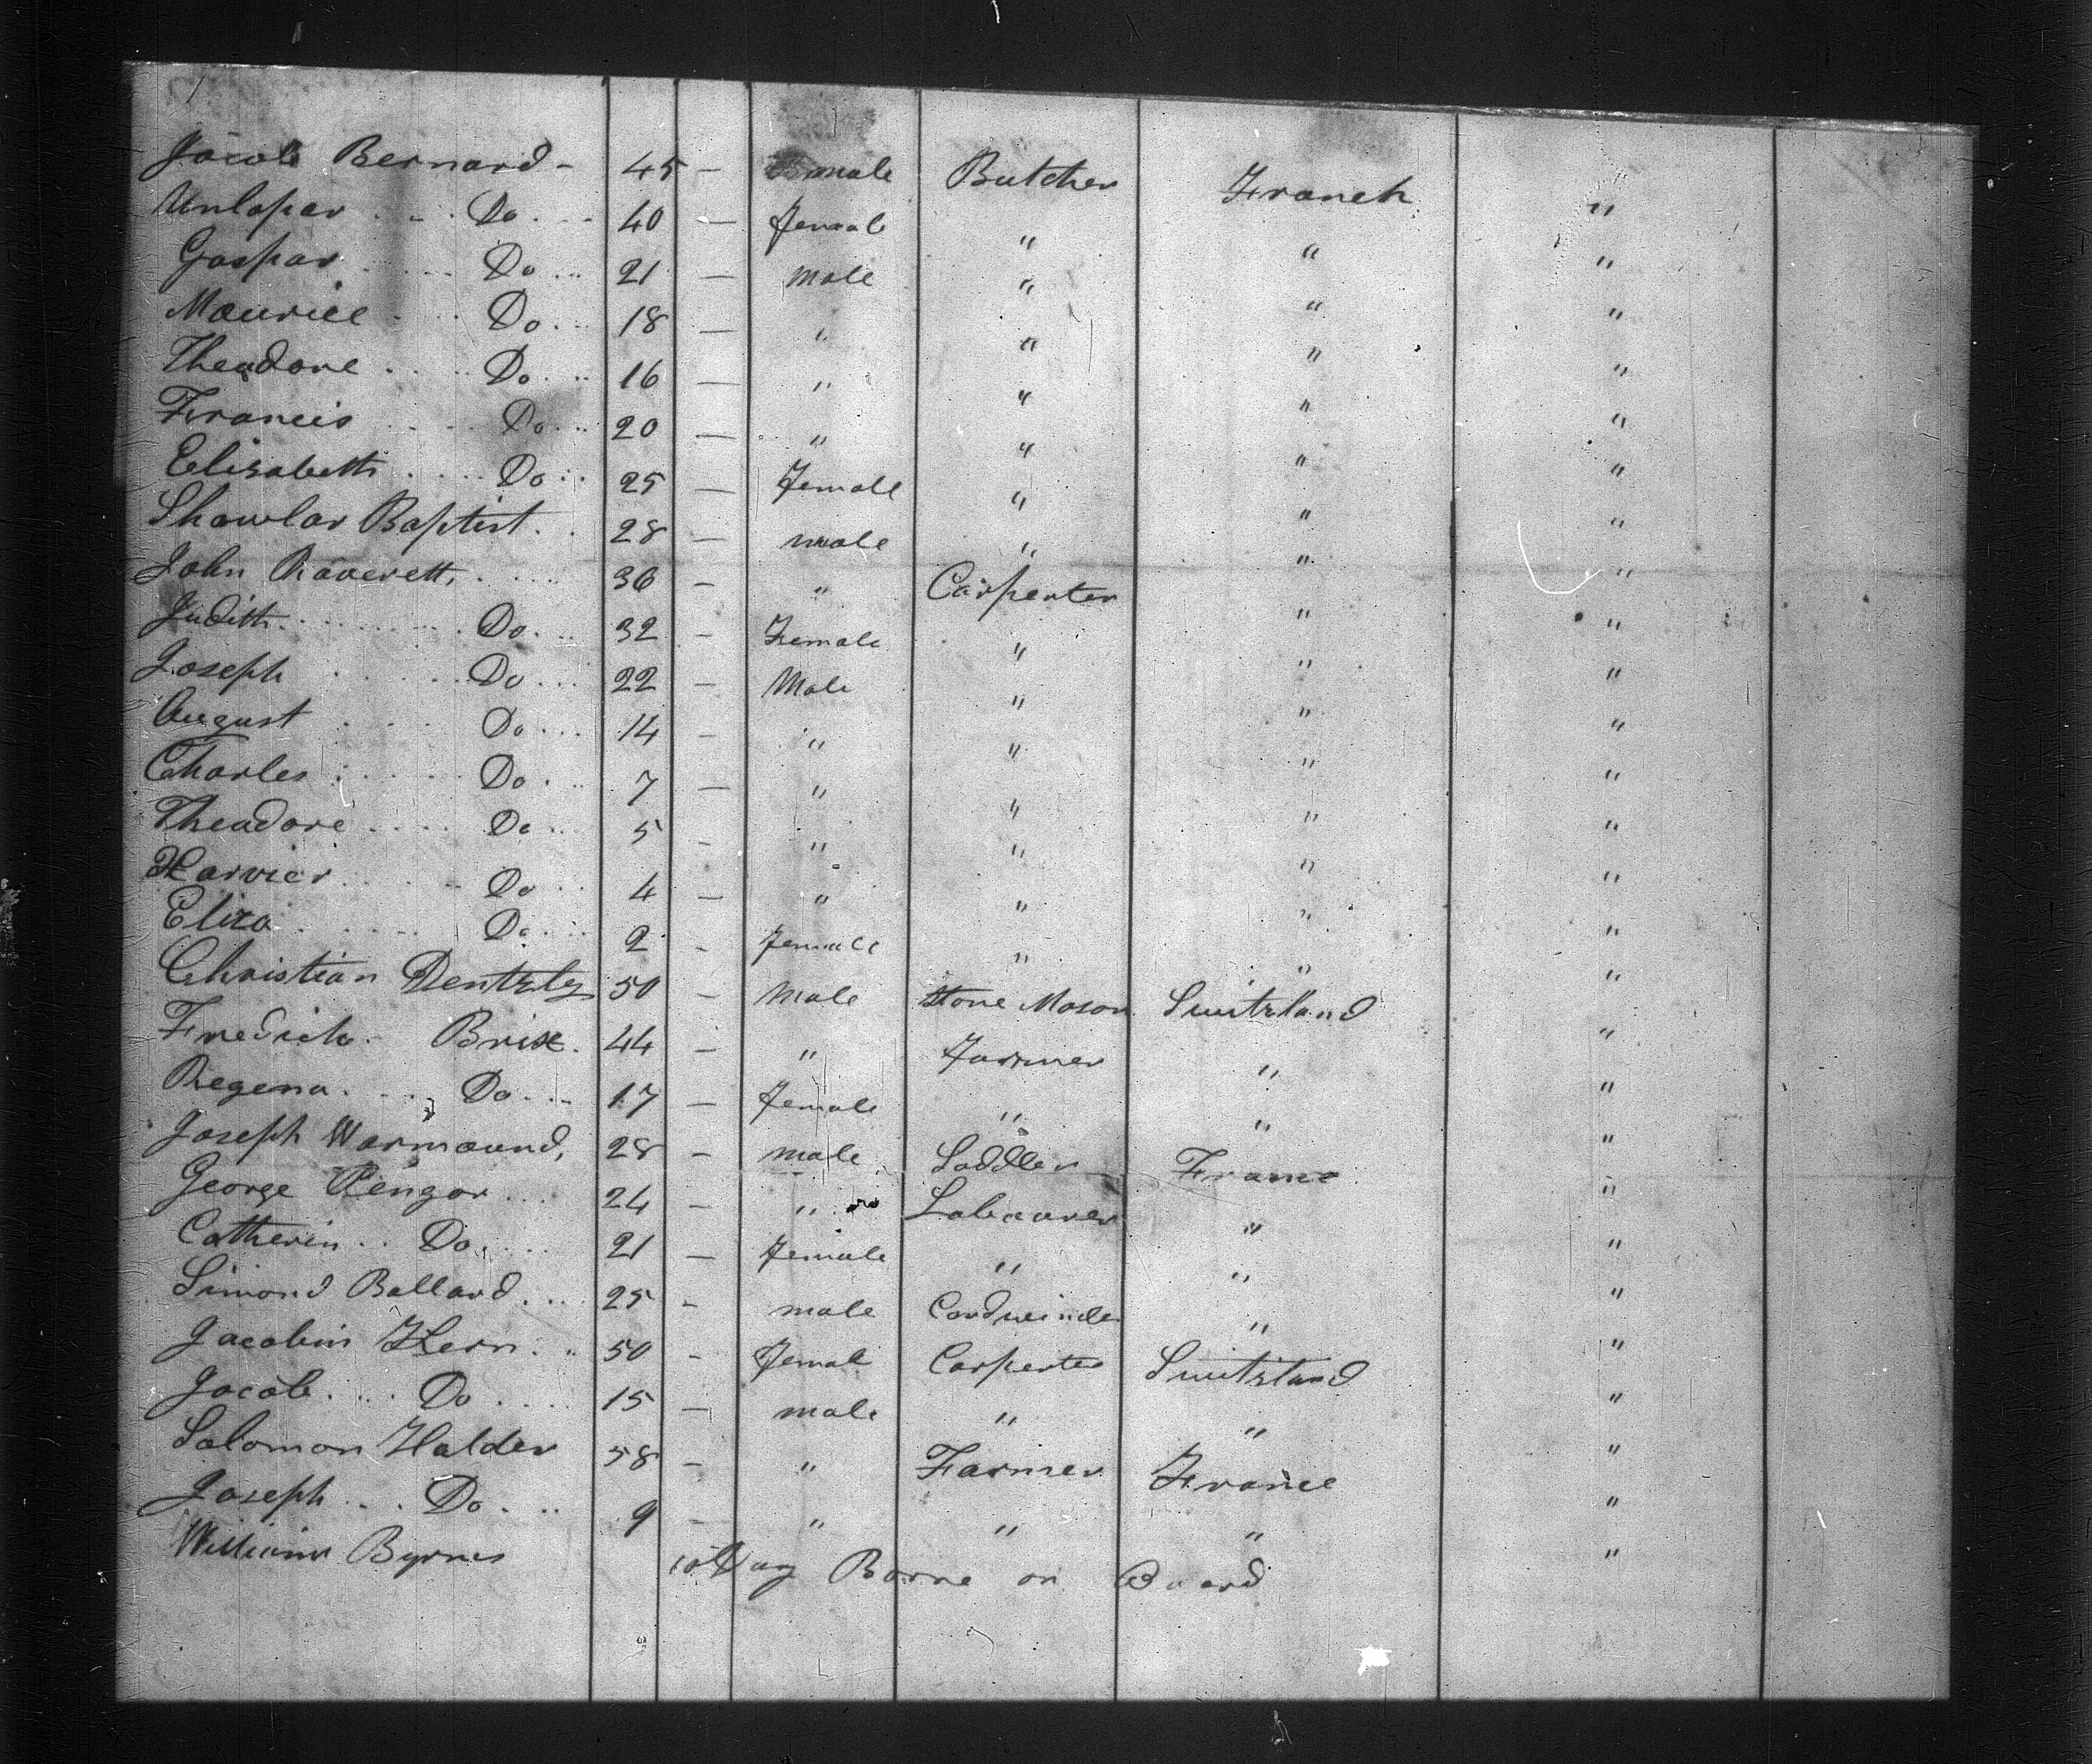 Jacob Bernard - 45 - male Butcher Franch "
Unlopar . . . Do . . . 40 - Femal " " "
Gaspar . . . Do . . 21 - Male " " "
Maurice . . . Do . . 18 - " " " "
Theadore . . . Do . . 16 - " " " "
Francis . . . Do . . 20 - " " " "
Elisabeth . . . Do . . 25 - Female " " "
Shawlar Baptist . . 28 - male " " "
John Raverett . . . 36 - " Carpenter " "
Judith . . . Do . . 32 - Female " " "
Joseph . . . Do . . 22 - Male " " "
August . . . Do . . 14 - " " " "
Charles . . . Do . . 7 - " " " "
Theadore . . . Do . . 5 - " " " "
Harvier . . . Do . . 4 - " " " "
Eliza . . . Do . . 2 - Female " " "
Christian Dentzley 50 - Male Stone Mason Switzland "
Fredich Brix . 44 - " Farmer " "
Regena . . . Do . . 17 - Female " " "
Joseph Warmound, 28 - male Saddler France "
George Rengar . . . 24 - " Labourer " "
Catherin . . Do . . . 21 - Female " " "
Simond Ballard . . . 25 - male Cordwinder " "
Jacobin Kern . . 50 - Femal Carpenter Switzland "
Jacob . . . Do . . . 15 - male " " "
Salomon Halder 58 - " Farmer France "
Joseph . . . Do . . . 9 - " " " "
William Byrnes Day Borne on Board